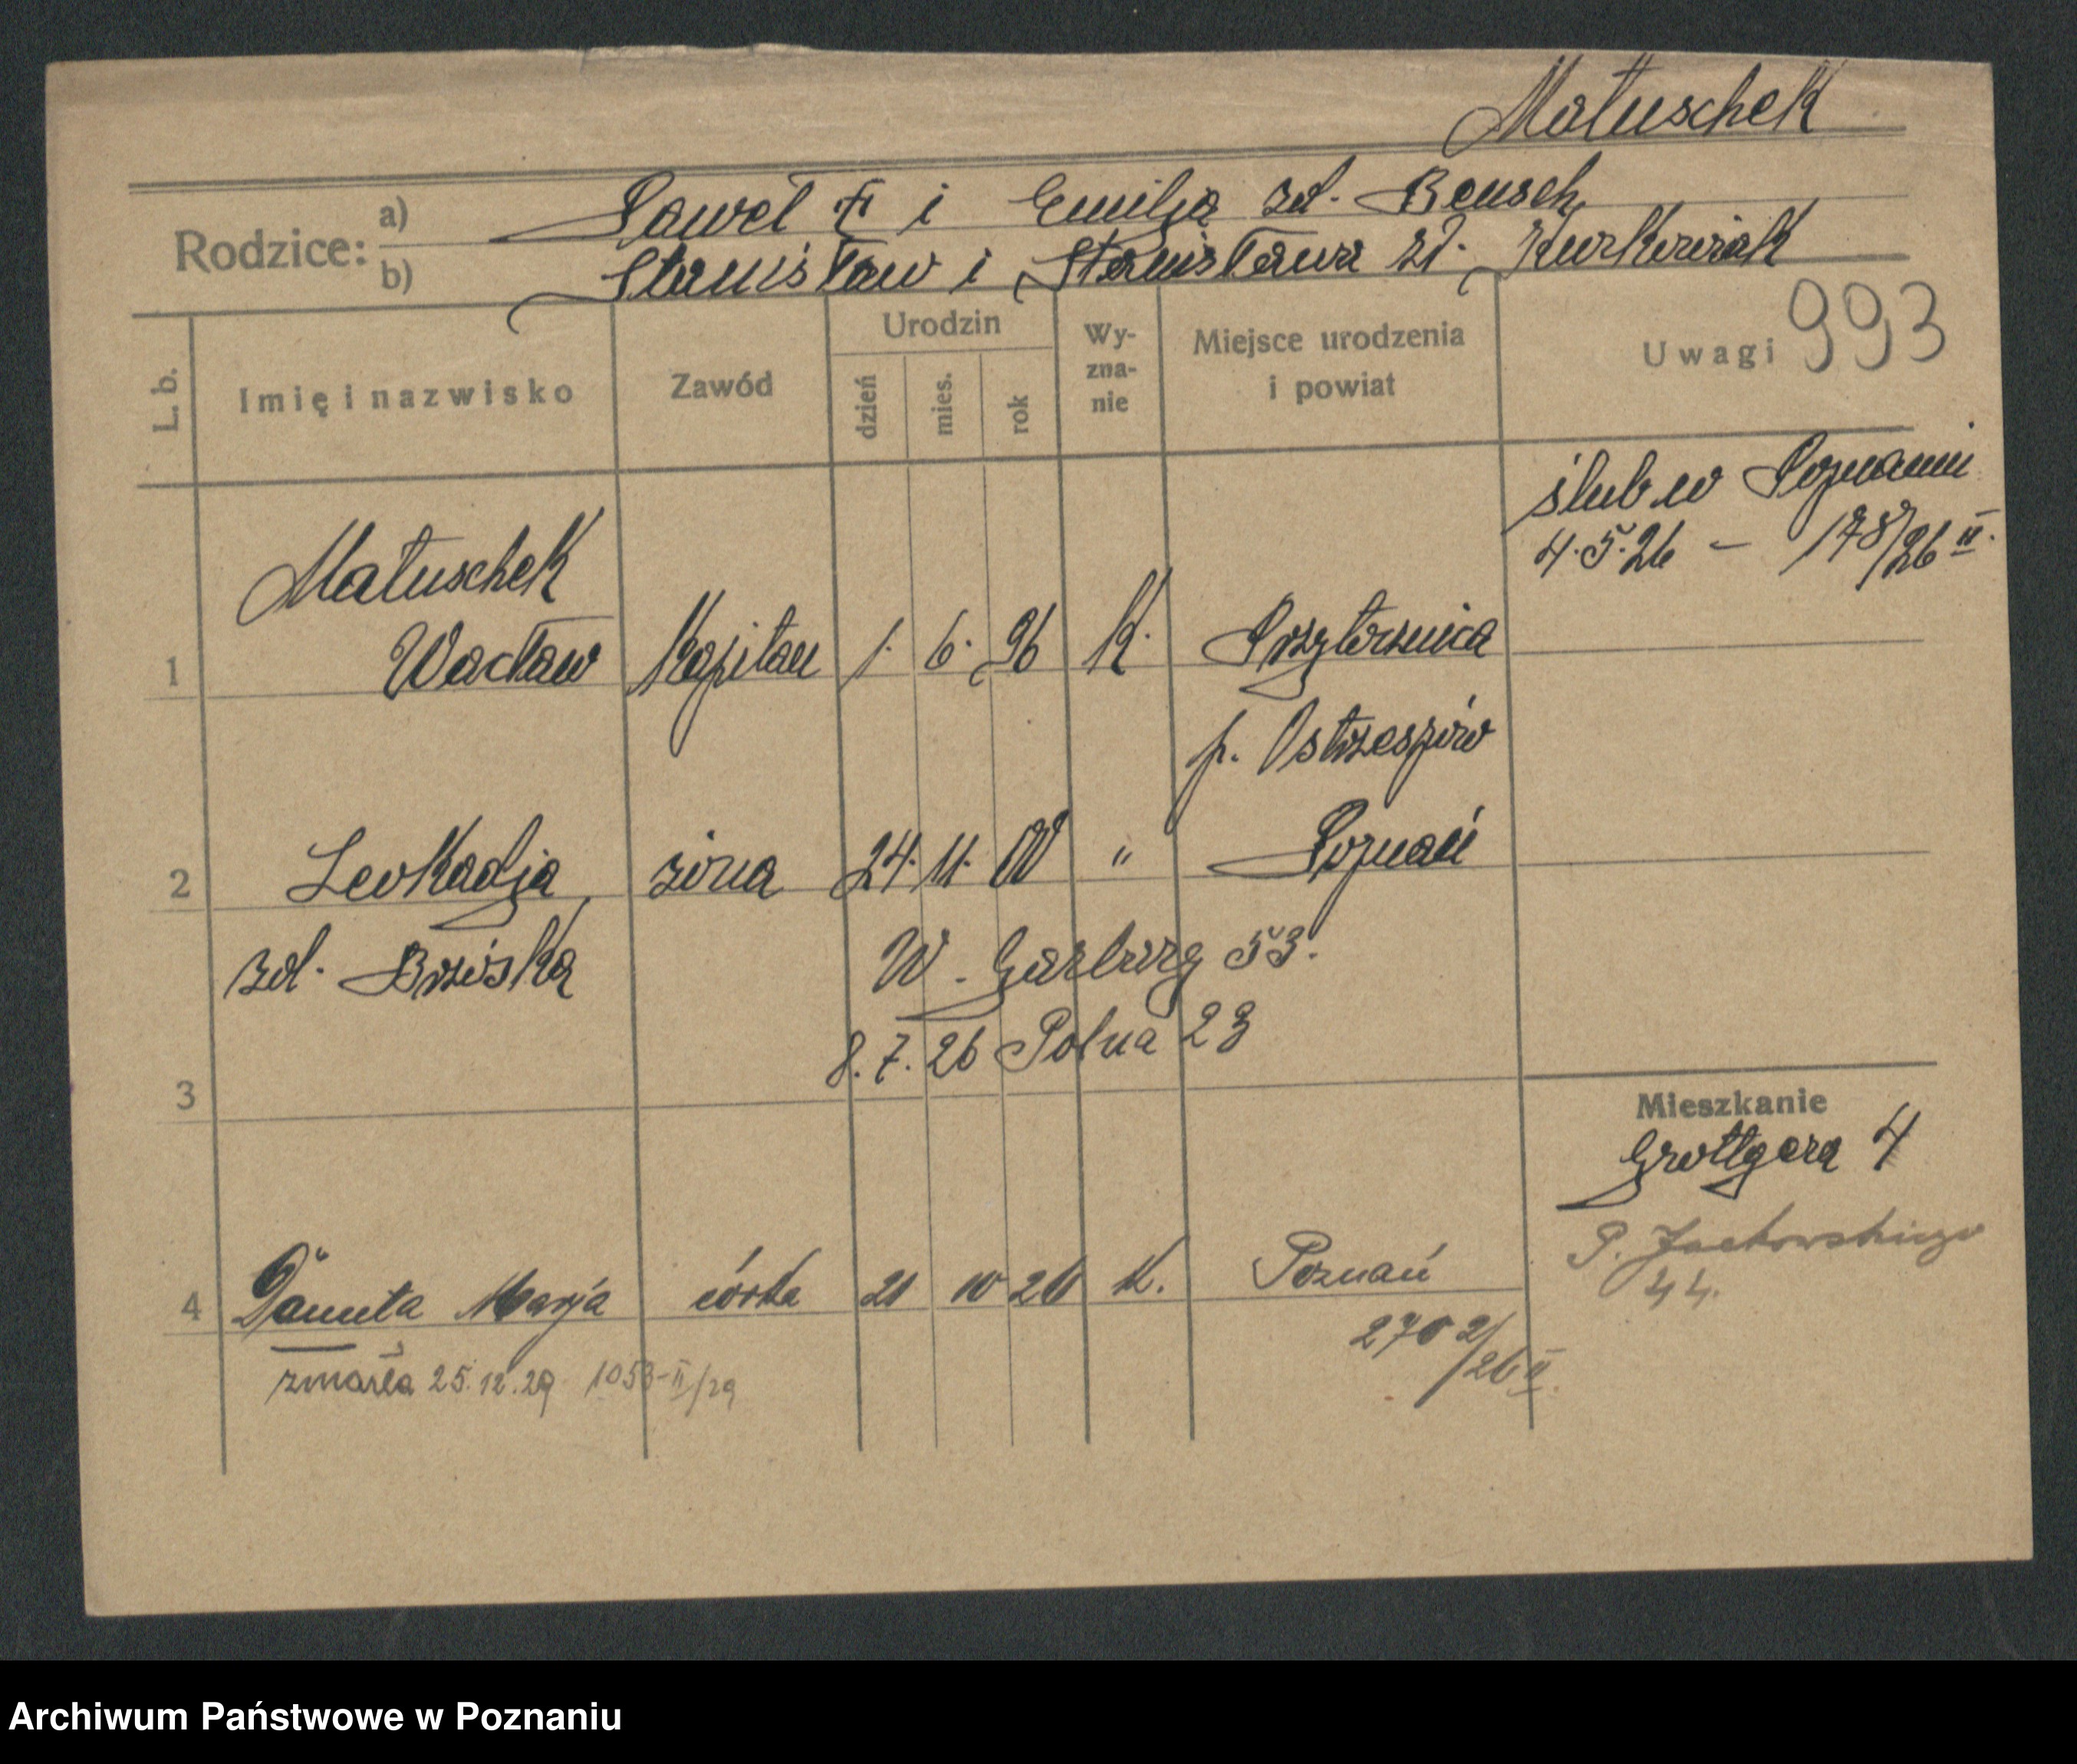 Matuschek
Rodzice: a) Paweł i Emilja zd. Beusch
b) Stanisław i Stanisława zd. Kurkowiak
L. b.
Imię i nazwisko
Zawód
Urodzin
dzień
mies.
rok
Wy-
zna-
nie
Miejsce urodzenia
i powiat
Uwagi 993
ślub w Poznaniu
4.5.26 – 178/26 II.
Matuschek
1 Wacław Kapitan 1. 6. 96 K.
p. Ostrzeszów
2 Leokadja żona 24. 11. 00 " Poznań
zd.
W. Garbary 53.
8.7.26 Polna 23
3
Mieszkanie
Grottgera 4
P. Jackowskiego
44.
4 Danuta Marja córka 21 10 26 K. Poznań
2702/26 II.
zmarła 25.12.29 1053-II/29
Archiwum Państwowe w Poznaniu